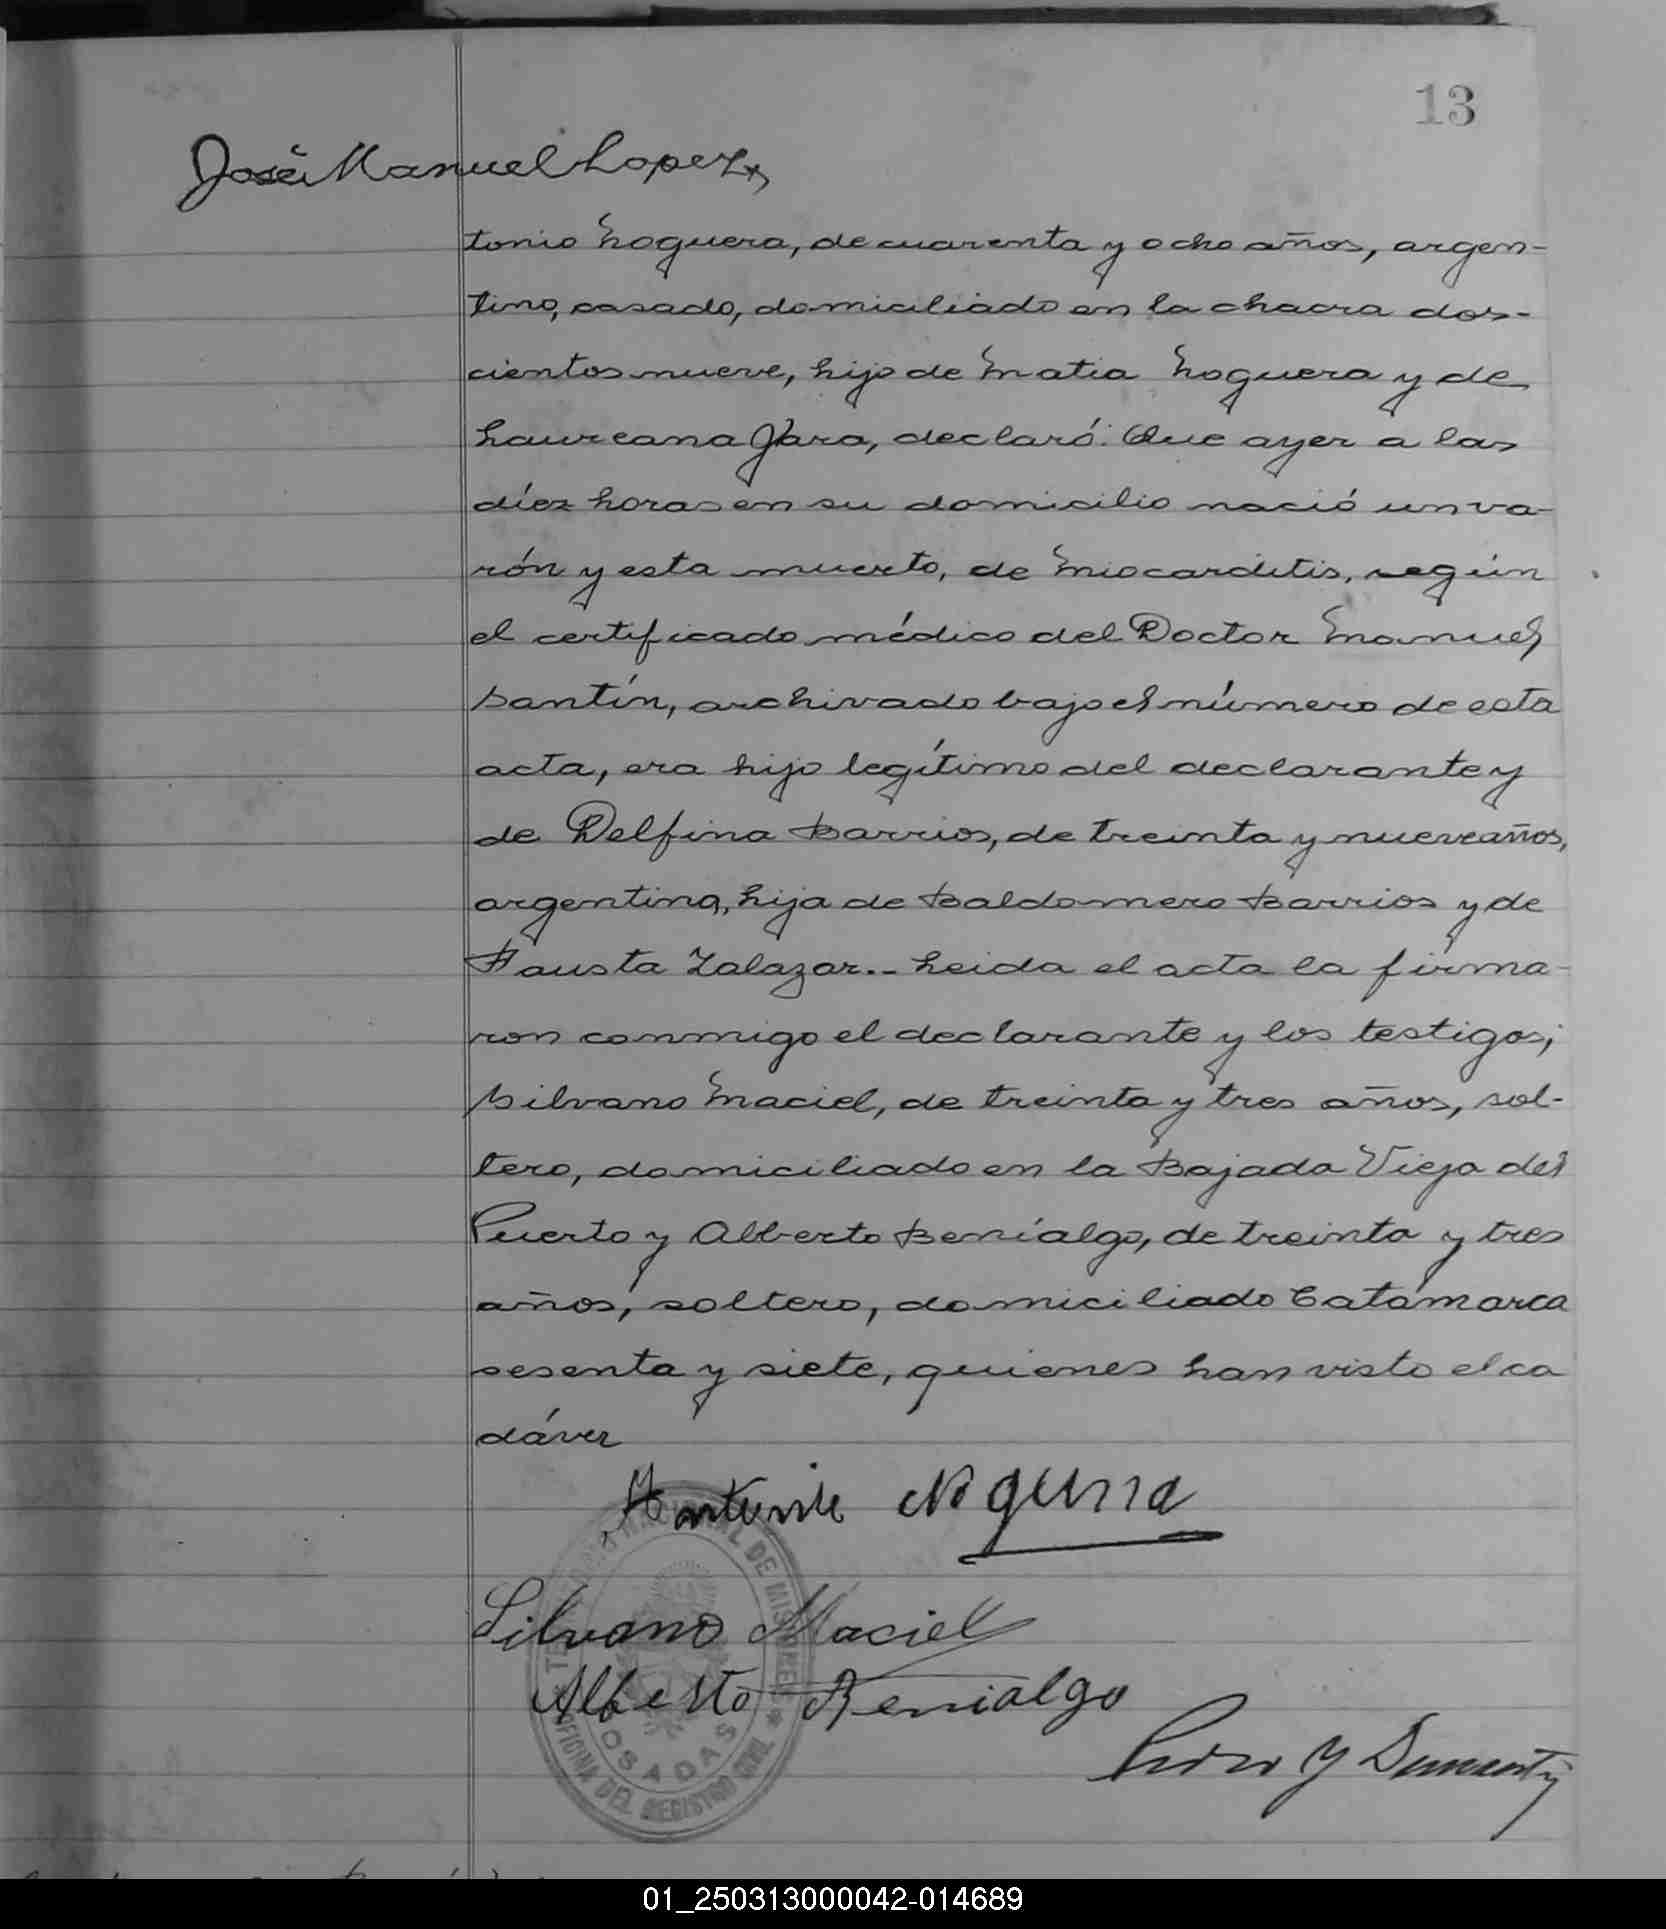 13
José Manuel Lopez
tonio Noguera, de cuarenta y ocho años, argen-
tino, casado, domiciliado en la chacra dos-
cientos nueve, hijo de Matia Noguera y de
Laureana Jara, declaró: Que ayer a las
diez horas en su domicilio nació un va-
rón y esta muerto, de Miocarditis, según
el certificado médico del Doctor Manuel
Santín, archivado bajo el número de esta
acta, era hijo legítimo del declarante y
de Delfina Barrios, de treinta y nueve años,
argentina, hija de Baldomero Barrios y de
Fausta Zalazar.- Leida el acta la firma-
ron conmigo el declarante y los testigos;
Silvano Maciel, de treinta y tres años, sol-
tero, domiciliado en la Bajada Vieja del
Puerto y Alberto Beníalgo, de treinta y tres
años, soltero, domiciliado Catamarca
sesenta y siete, quienes han visto el ca
dáver
Antonio Noguera
Silvano Maciel
Alberto Benialgo
Pedro Y
NACIONAL DE MISIONES
OFICINA DEL REGISTRO CIVIL
POSADAS
01_250313000042-014689